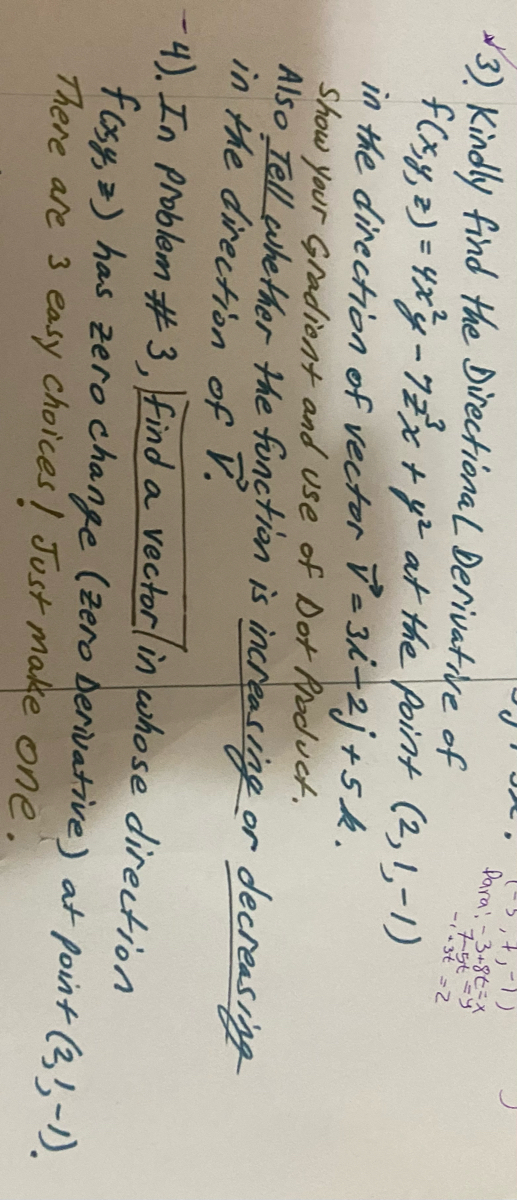 3). Kindly find the Directional Derivative of
f(x,y,z) = 4x²y - 7z³x + y² at the point (2,1,-1)
in the direction of vector v⃗ = 3i - 2j + 5k.
Show your Gradient and use of Dot Product.
Also Tell whether the function is increasing or decreasing
in the direction of v⃗.
-4). In Problem #3, find a vector in whose direction
f(x,y,z) has zero change (zero Derivative) at point (2,1,-1).
There are 3 easy choices! Just make one.
Para: -3+8t=x
7-5t=y
-1+3t=z